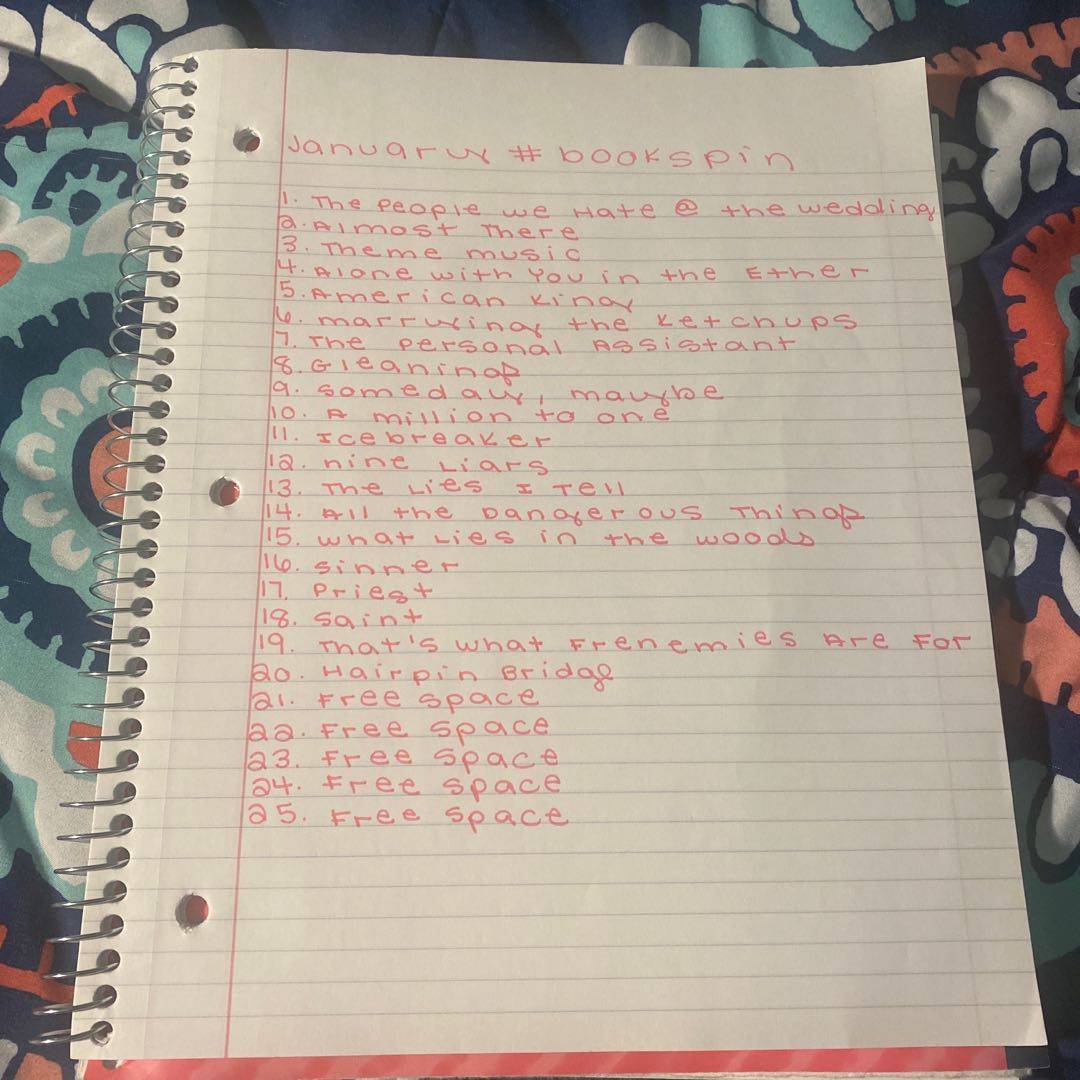 January # bookspin
1. The People we Hate @ the wedding
2. Almost There
3. Theme music
4. Alone with You in the Ether
5. American King
6. marrying the Ketchups
7. The Personal Assistant
8. Gleanings
9. someday, maybe
10. A million to one
11. Icebreaker
12. nine Liars
13. The Lies I Tell
14. All the Dangerous Things
15. what Lies in the woods
16. sinner
17. Priest
18. Saint
19. That's what Frenemies Are For
20. Hairpin Bridge
21. Free space
22. Free space
23. Free space
24. Free space
25. Free space